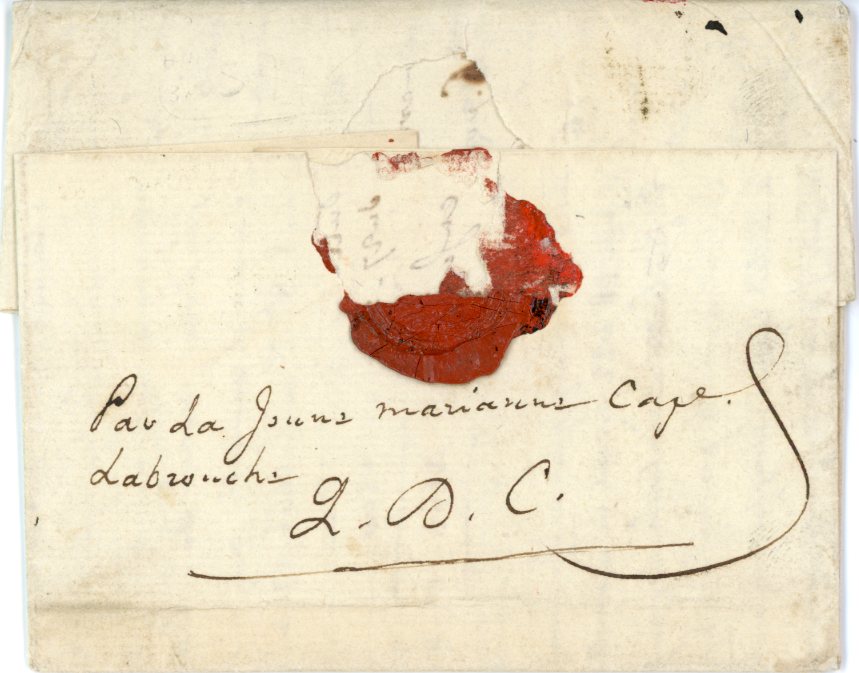 Par La Jeune marianne Cape.
Labrouche
Q. D. C.